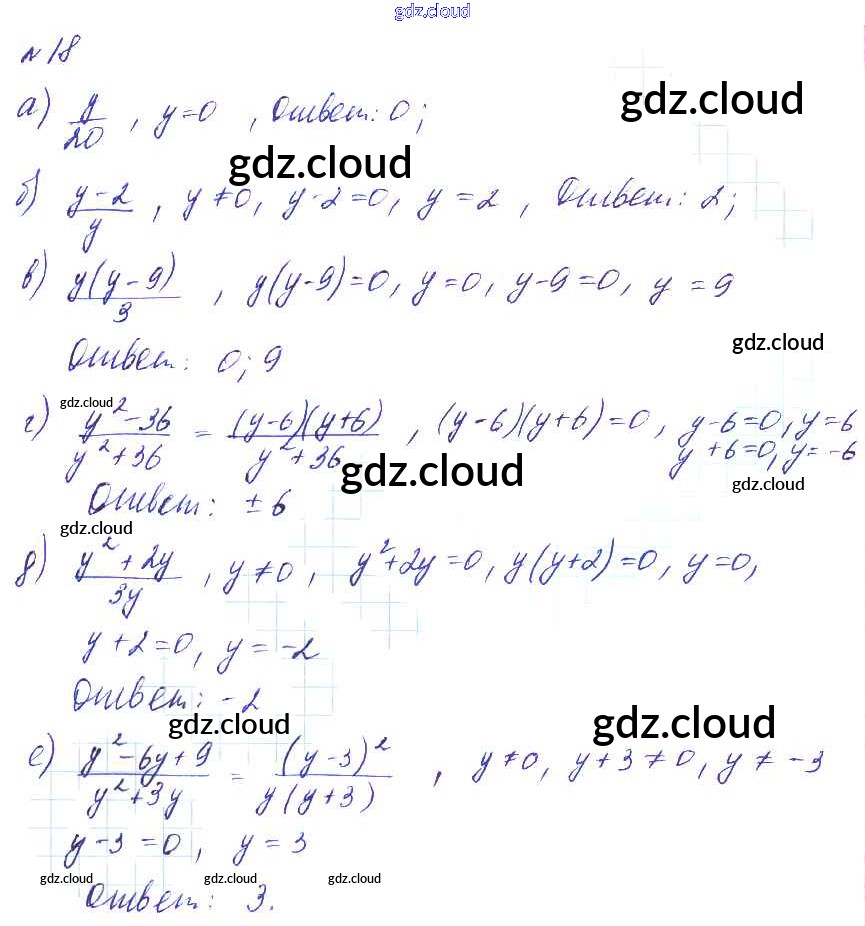 gdz.cloud
№18
а) y/20 , y=0 , Ответ: 0;
gdz.cloud
gdz.cloud
б) (y-2)/y , y≠0, y-2=0, y=2 , Ответ: 2;
в) y(y-9)/3 , y(y-9)=0, y=0, y-9=0, y=9
gdz.cloud
Ответ: 0; 9
gdz.cloud
г) (y²-36)/(y²+36) = (y-6)(y+6)/(y²+36) , (y-6)(y+6)=0, y-6=0, y=6
y+6=0, y=-6
gdz.cloud
gdz.cloud
Ответ: ±6
gdz.cloud
д) (y²+2y)/3y , y≠0, y²+2y=0, y(y+2)=0, y=0,
y+2=0, y=-2
Ответ: -2
gdz.cloud
gdz.cloud
е) (y²-6y+9)/(y²+3y) = (y-3)²/y(y+3) , y≠0, y+3≠0, y≠-3
y-3=0, y=3
gdz.cloud gdz.cloud gdz.cloud
Ответ: 3.